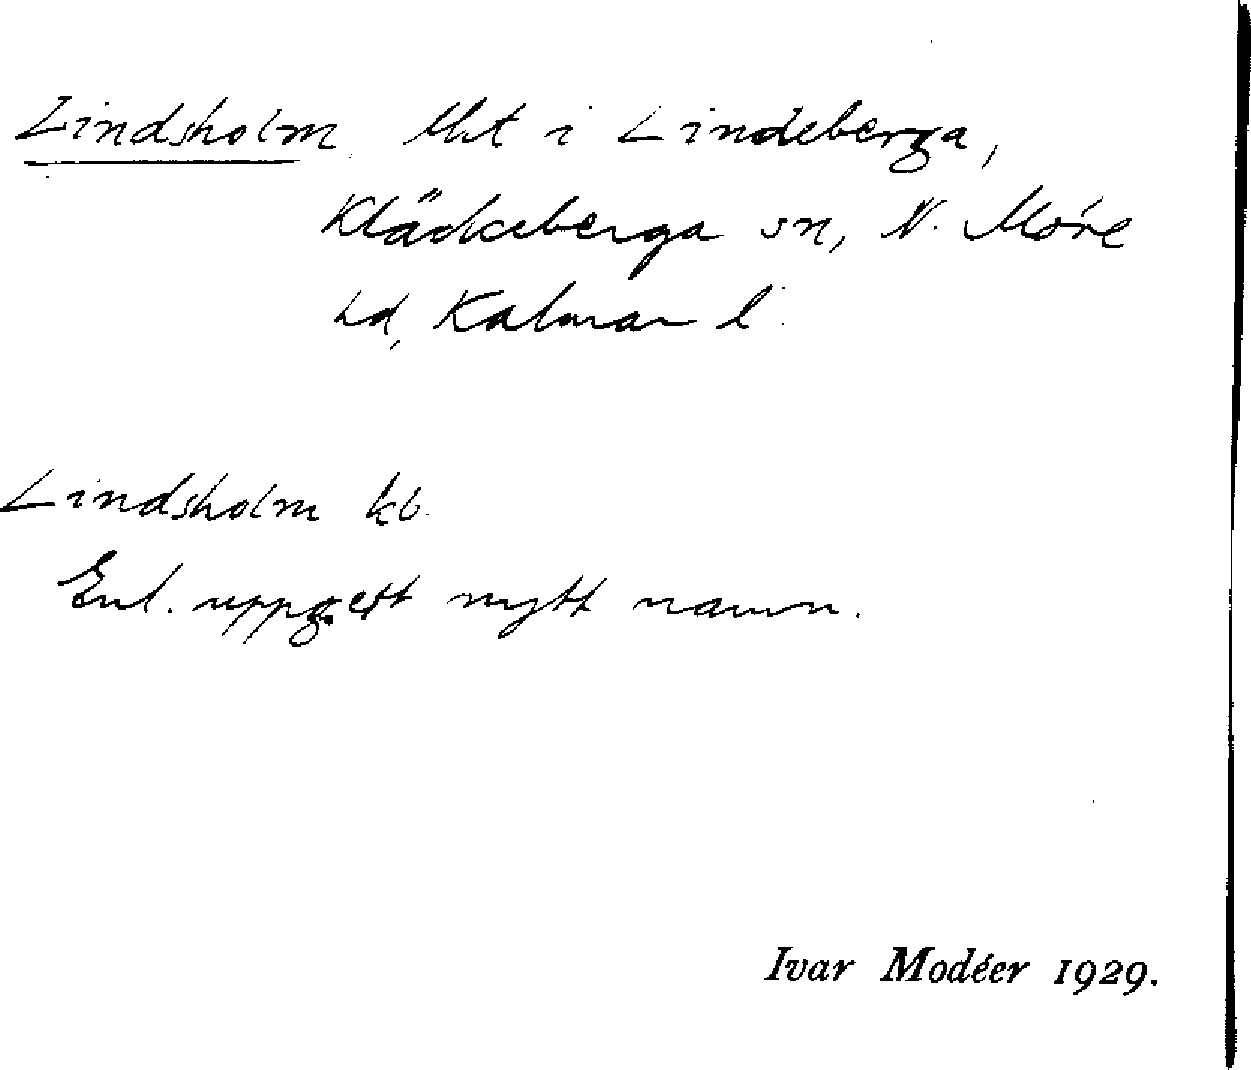 Lindsholm lht i Lindeberga,
Kläckeberga sn, N. Möre
hd, Kalmar l.
Lindsholm kb.
Enl. uppg. ett nytt namn.
Ivar Modéer 1929.